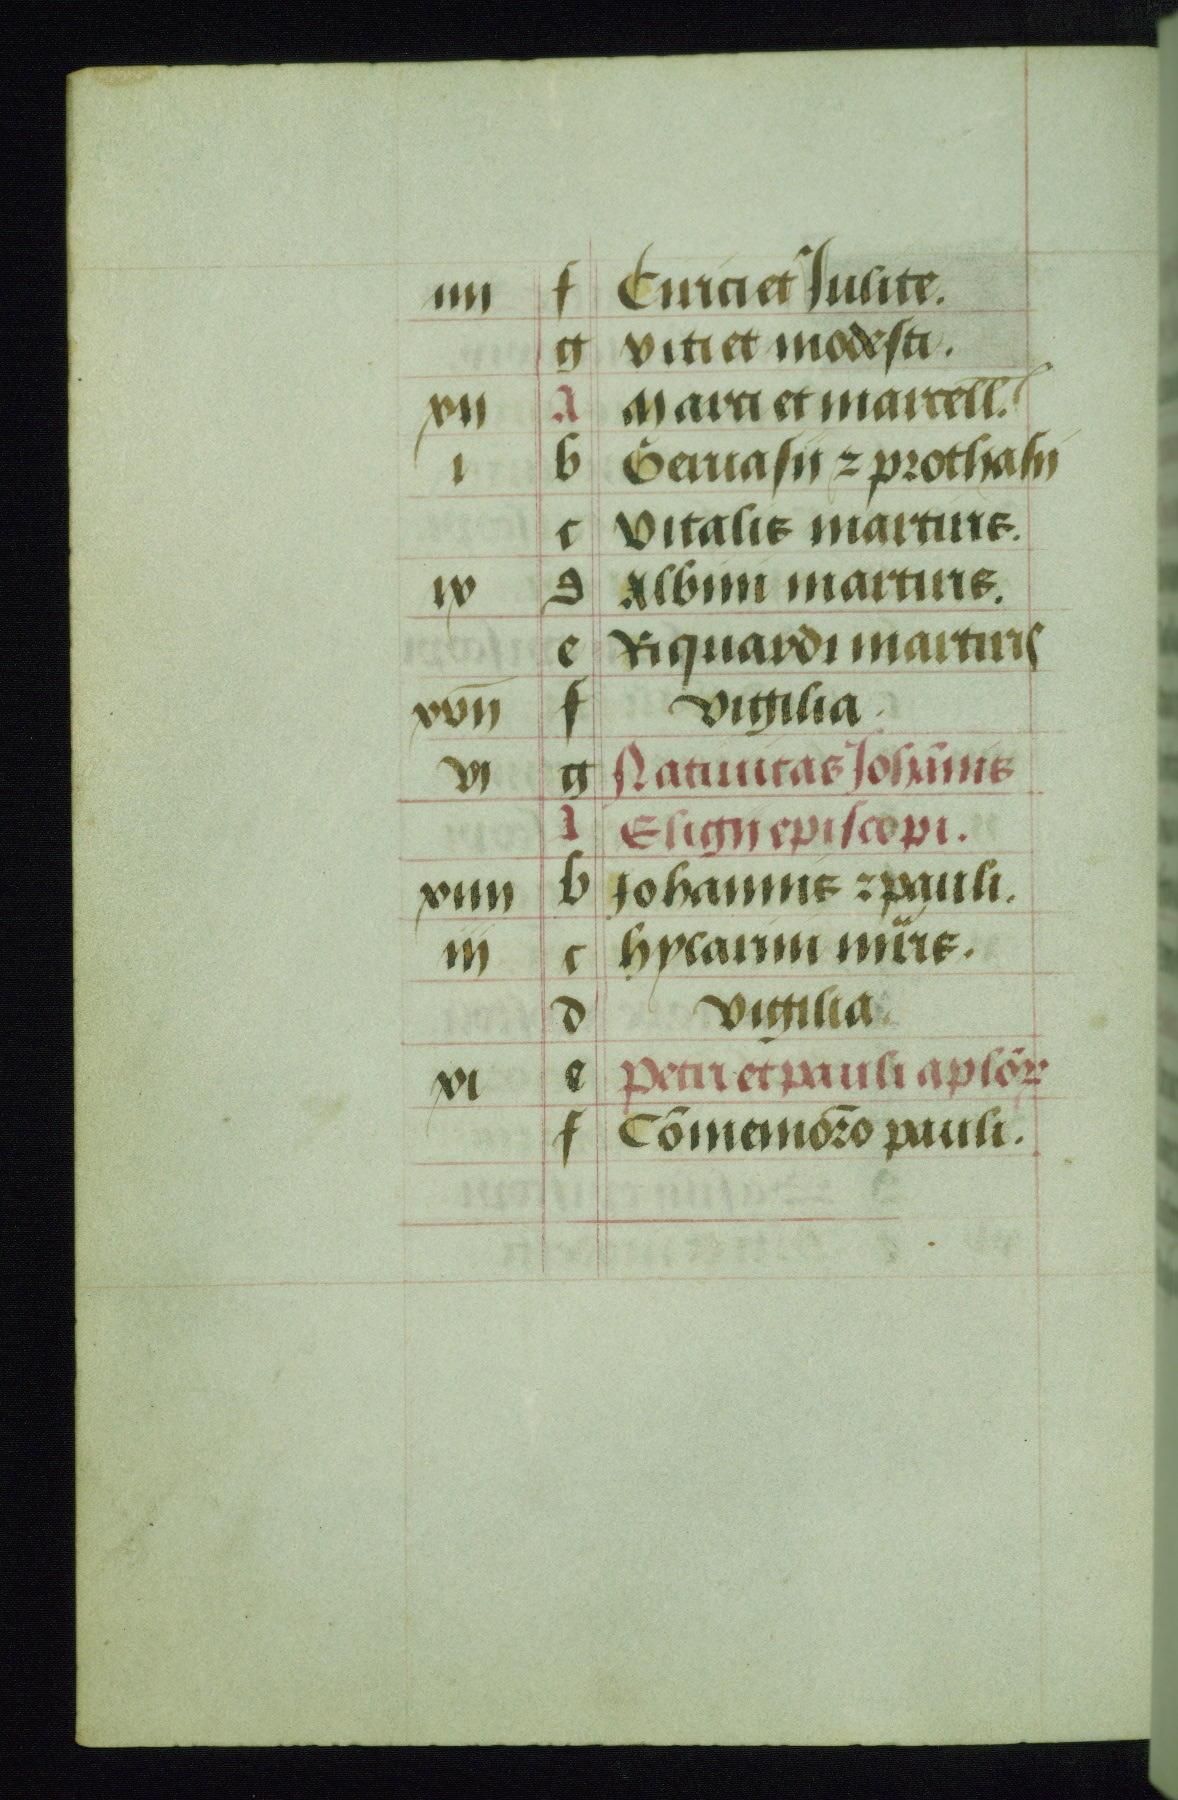 iiii f Cirici et Julite.
g Viti et modesti.
xii A Marci et marcell.
i b Geruasii ⁊ prothasii
c Vitalis martiris.
ix d Albini martiris.
e Riquardi martiris
xvii f Vigilia.
vi g Natiuitas Johānis
A Eligii episcopi.
xiiii b Johannis ⁊ pauli.
iii c hylarini mr̄is.
d Vigilia.
xi e Petri et pauli aplōꝝ
f Cōmemorō pauli.